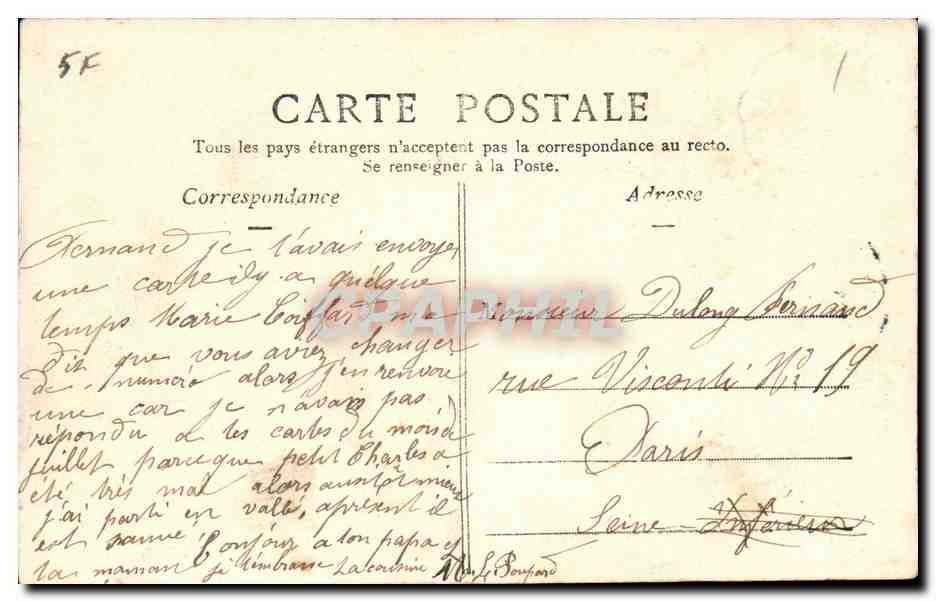 5F
CARTE POSTALE
Tous les pays étrangers n'acceptent pas la correspondance au recto.
Se renseigner à la Poste.
Correspondance
Fernand je t'avais envoye
une carte il y a quélque
temps Marie Coiffard ma
dit que vous aviez changer
de numéro alors j'en renvoie
une car je n'avais pas
répondu a tes cartes du mois d
juillet parceque petit Charles a
été très mal alors aussitôt mieux
j'ai parti en vallé, aprésent il
est sauvé Bonjour a ton papa et
ta maman je t'embrasse ta cousine
Adresse
Monsieur Dulong Fernand
rue Visconti No 19
Paris
Seine Inférieure
CPAPHIL